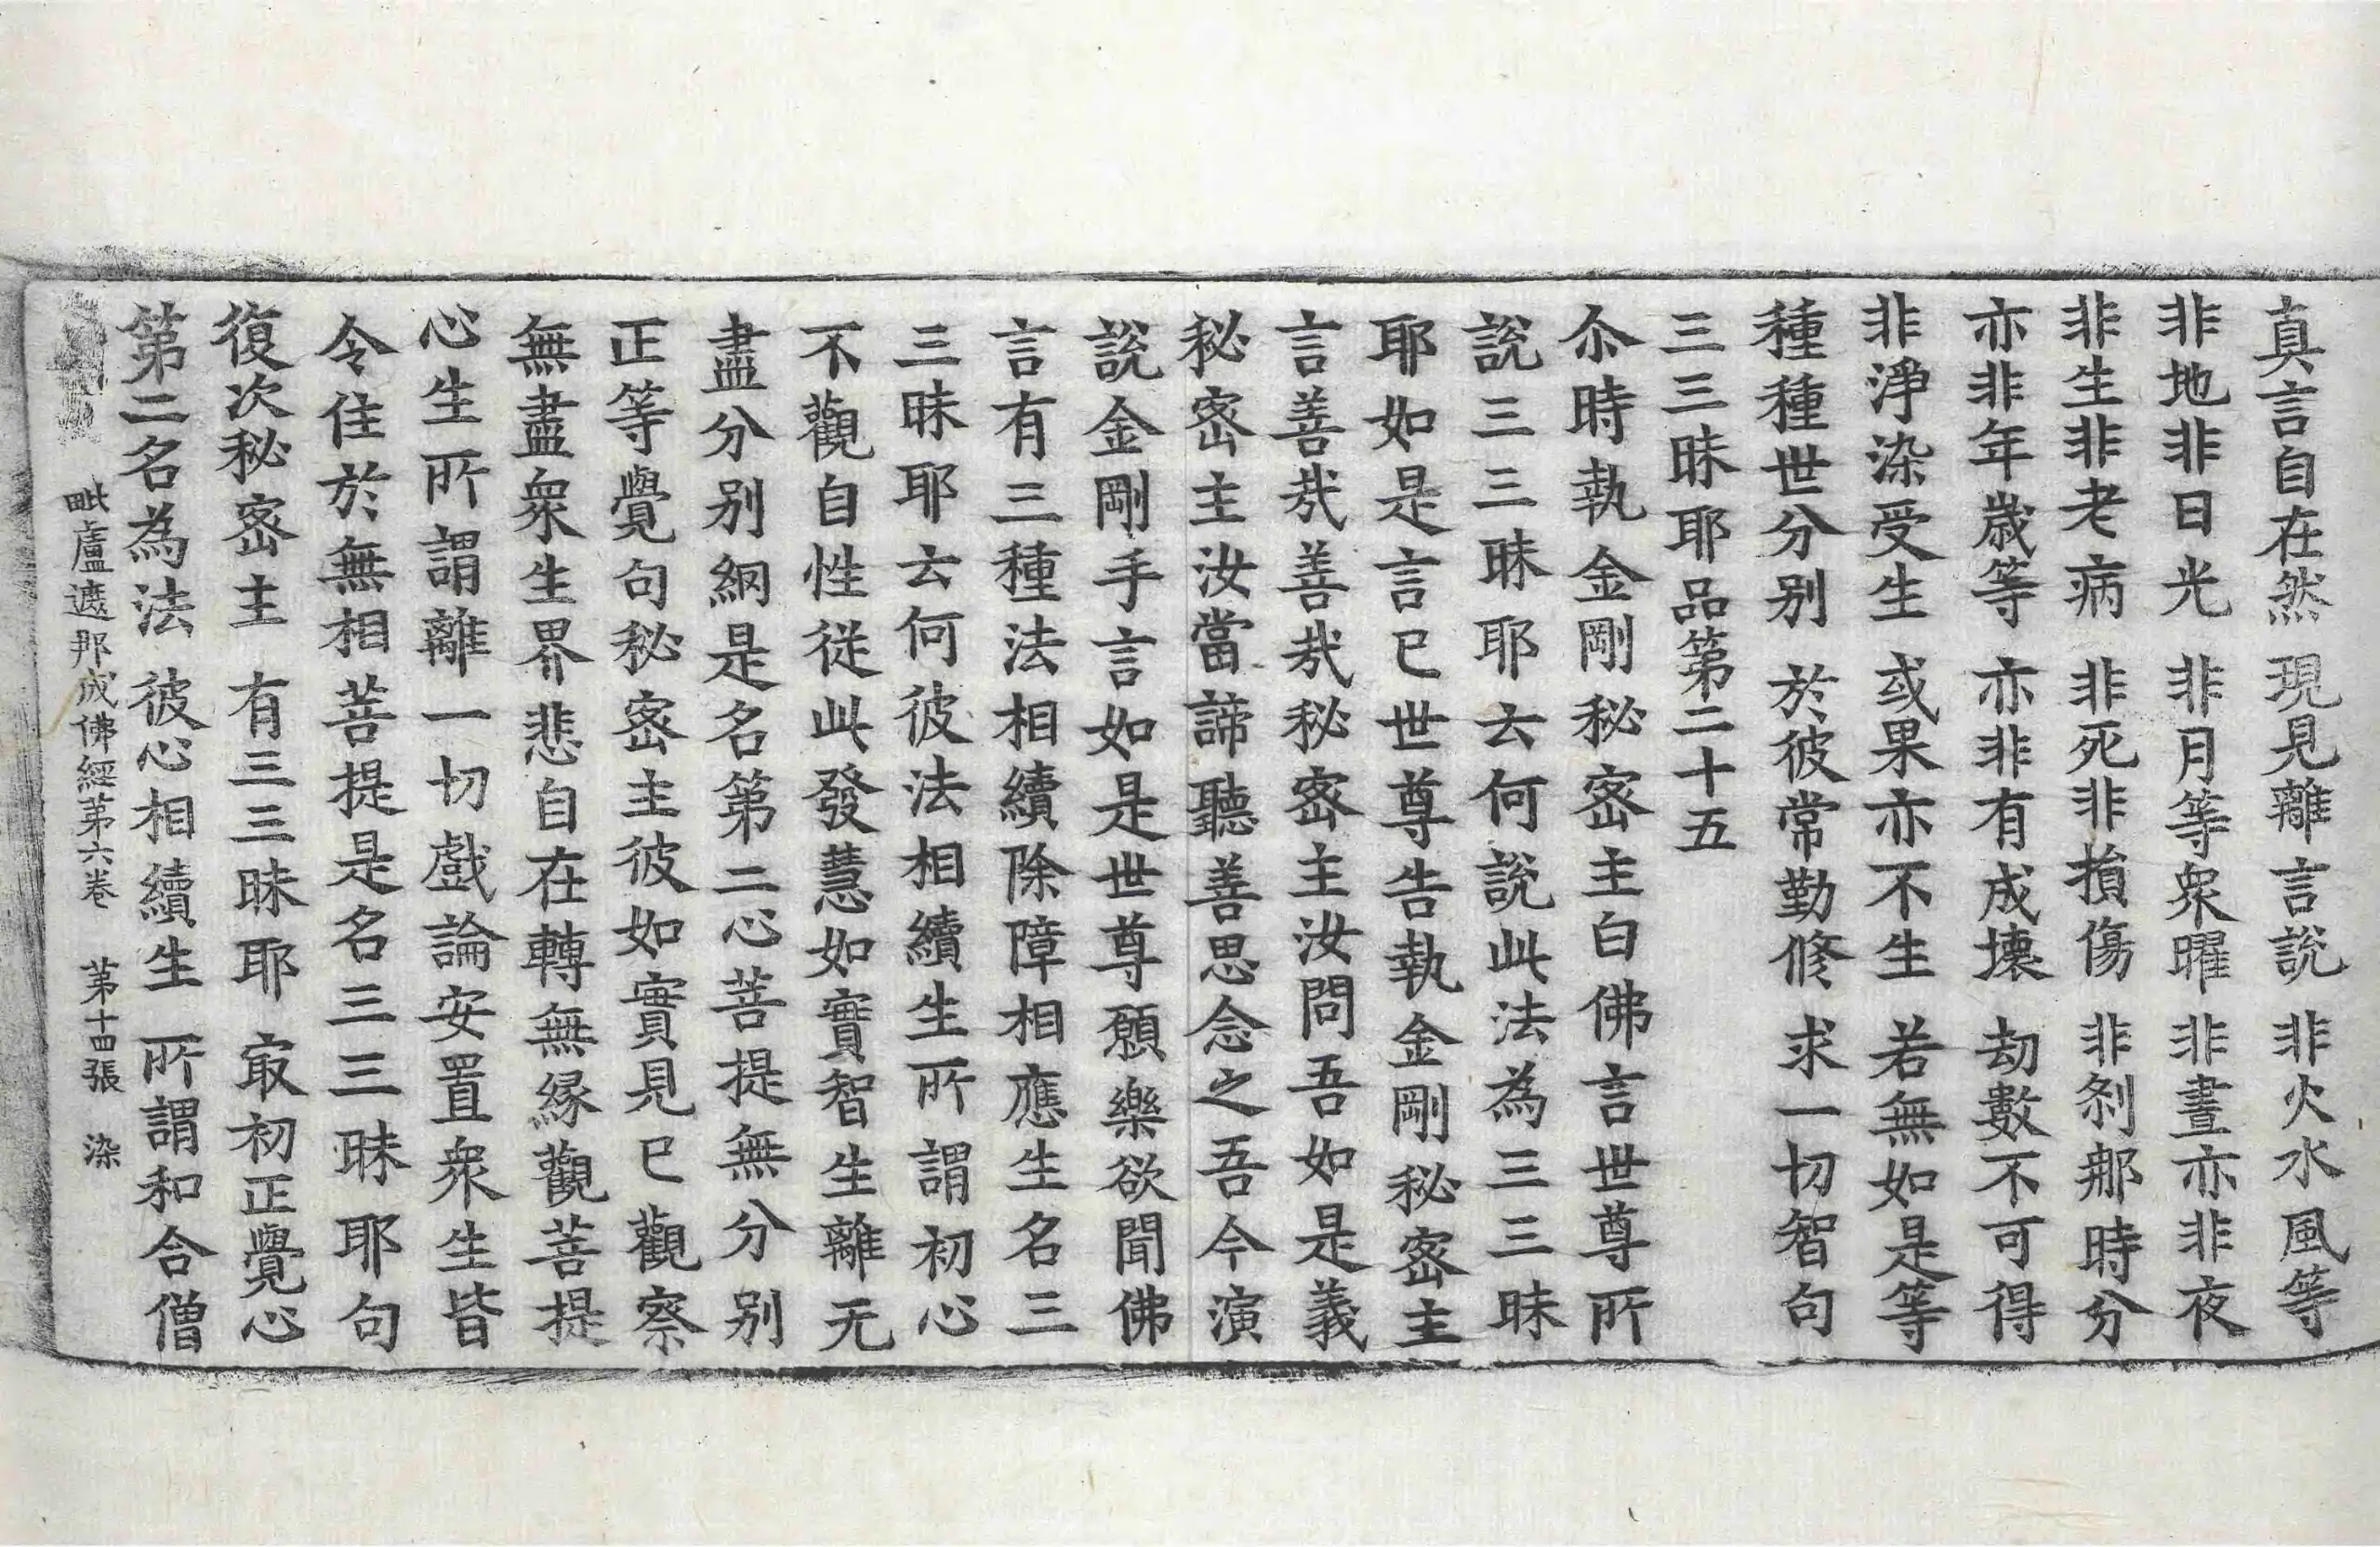 真言自在然 現見離言說 非火水風等
非地非日光 非月等衆曜 非晝亦非夜
非生非老病 非死非損傷 非刹那時分
亦非年歲等 亦非有成壞 劫數不可得
非淨染受生 或果亦不生 若無如是等
種種世分别 於彼常勤修 求一切智句
三三昧耶品第二十五
尒時執金剛秘密主白佛言世尊所
說三三昧耶云何說此法為三三昧
耶如是言已世尊告執金剛秘密主
言善哉善哉秘密主汝問吾如是義
秘密主汝當諦聽善思念之吾今演
說金剛手言如是世尊願樂欲聞佛
言有三種法相續除障相應生名三
三昧耶云何彼法相續生所謂初心
不觀自性從此發慧如實智生離无
盡分别網是名第二心菩提無分别
正等覺句秘密主彼如實見已觀察
無盡衆生界悲自在轉無緣觀菩提
心生所謂離一切戲論安置衆生皆
令住於無相菩提是名三三昧耶句
復次秘密主 有三三昧耶 㝡初正覺心
第二名為法 彼心相續生 所謂和合僧
毗盧遮那成佛經第六卷 第十四張 染